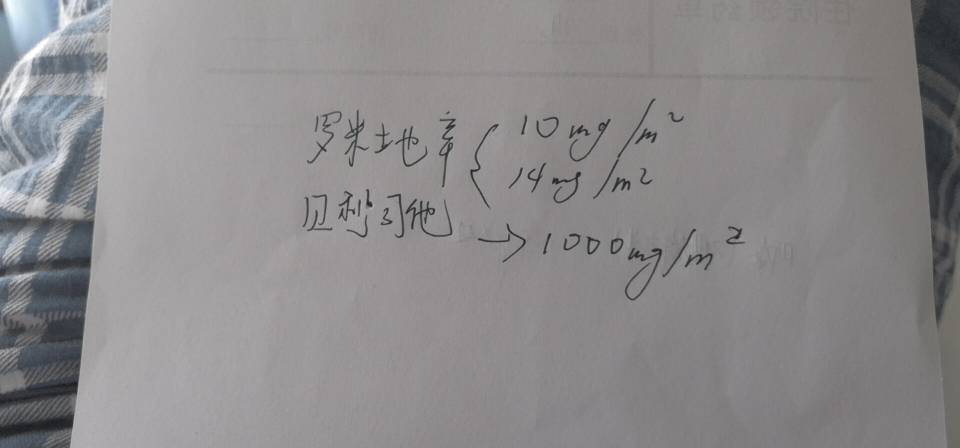 罗米土地辛 { 10mg/m²
14mg/m²
贝利司他 → 1000mg/m²